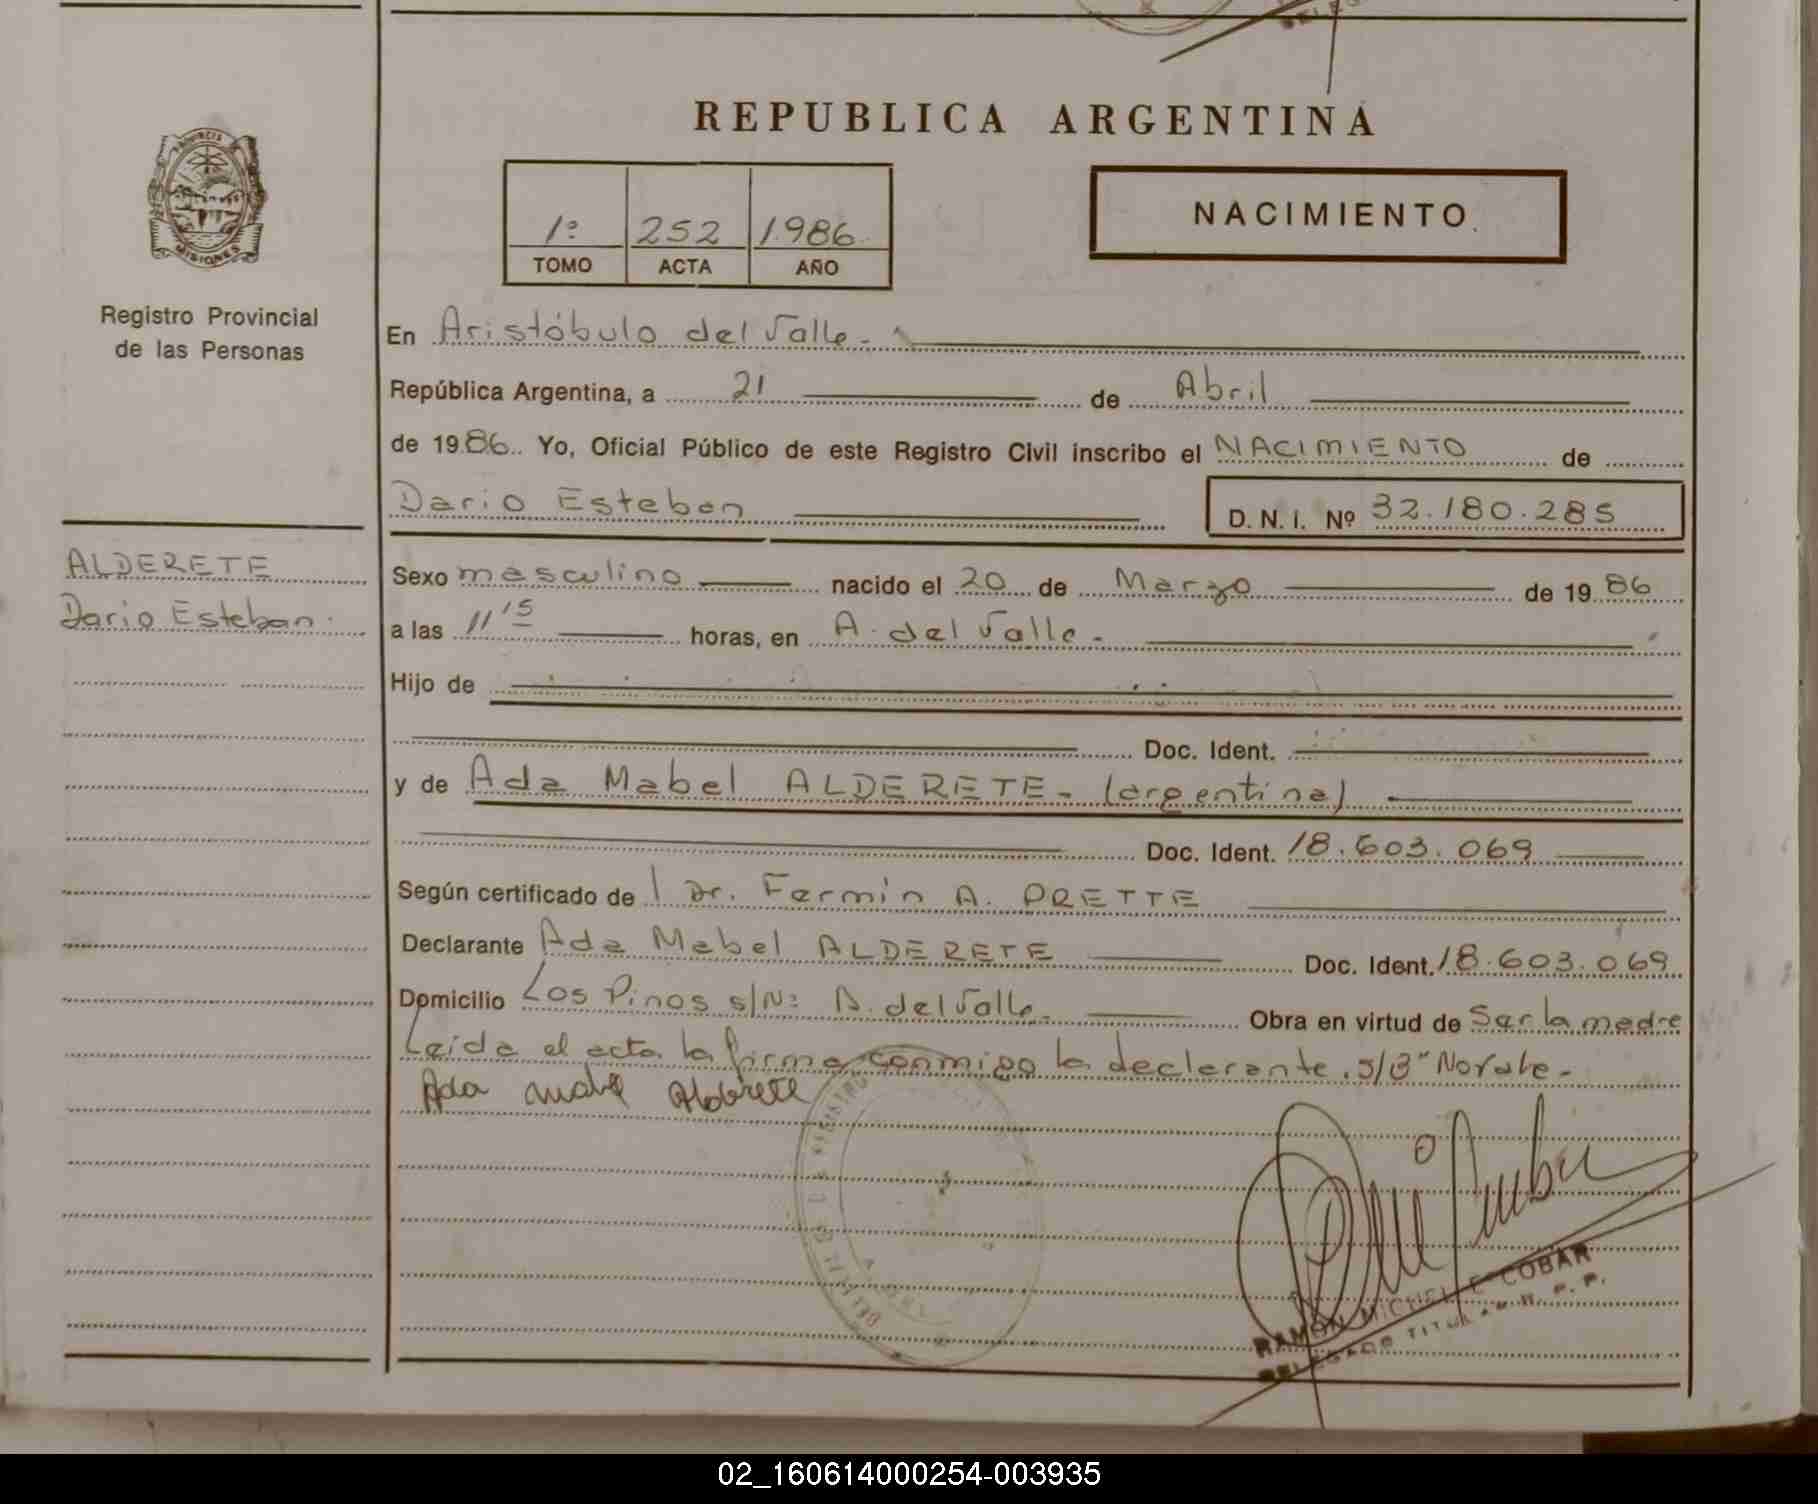 REPUBLICA ARGENTINA
PROVINCIA
MISIONES
Registro Provincial
de las Personas
1º 252 1986
TOMO ACTA AÑO
NACIMIENTO
En Aristóbulo del Valle -
República Argentina, a 21 de Abril
de 1986. Yo, Oficial Público de este Registro Civil inscribo el NACIMIENTO de
Dario Esteban D. N. I. Nº 32.180.285
ALDERETE
Dario Esteban.
Sexo masculino nacido el 20 de Marzo de 1986
a las 11 15 horas, en A. del Valle -
Hijo de
Doc. Ident.
y de Ada Mabel ALDERETE - (argentina)
Doc. Ident. 18.603.069
Según certificado de l Dr. Fermín A. PRETTE
Declarante Ada Mabel ALDERETE Doc. Ident. 18.603.069
Domicilio Los Pinos s/Nº A. del Valle - Obra en virtud de Ser la madre
Leida el acta la firma conmigo la declarante. s/B "No vale -
Ada Mabel Alderete
RAMON MICHEL ESCOBAR
DELEGADO TITULAR R. P. P.
02_160614000254-003935